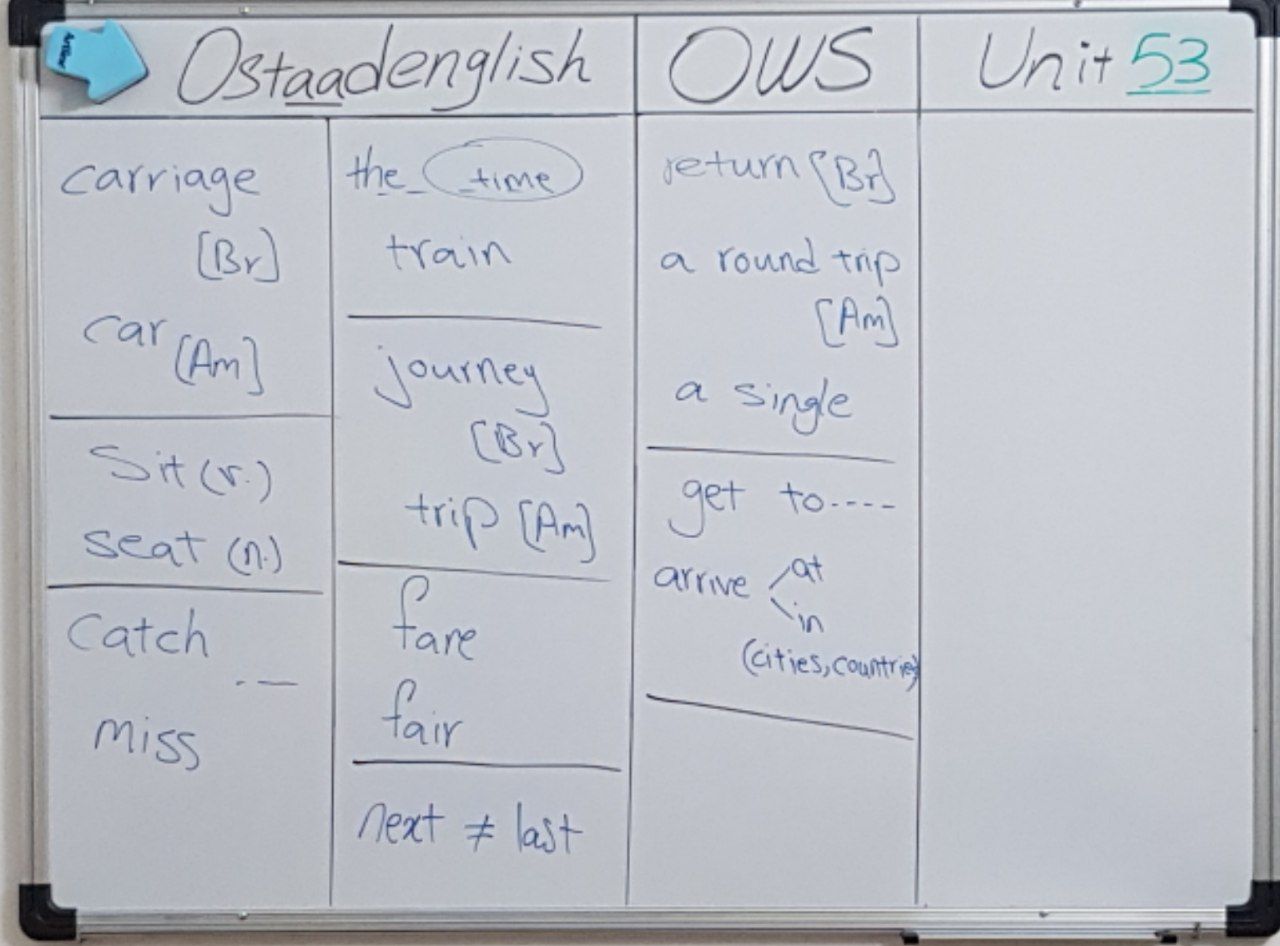 Ostaadenglish
OWS
Unit 53
carriage
[Br]
car [Am]
Sit (v.)
seat (n.)
Catch
miss
the time
train
journey
[Br]
trip [Am]
fare
fair
next ≠ last
return [Br]
a round trip
[Am]
a single
get to----
arrive at
in
(cities, countries)